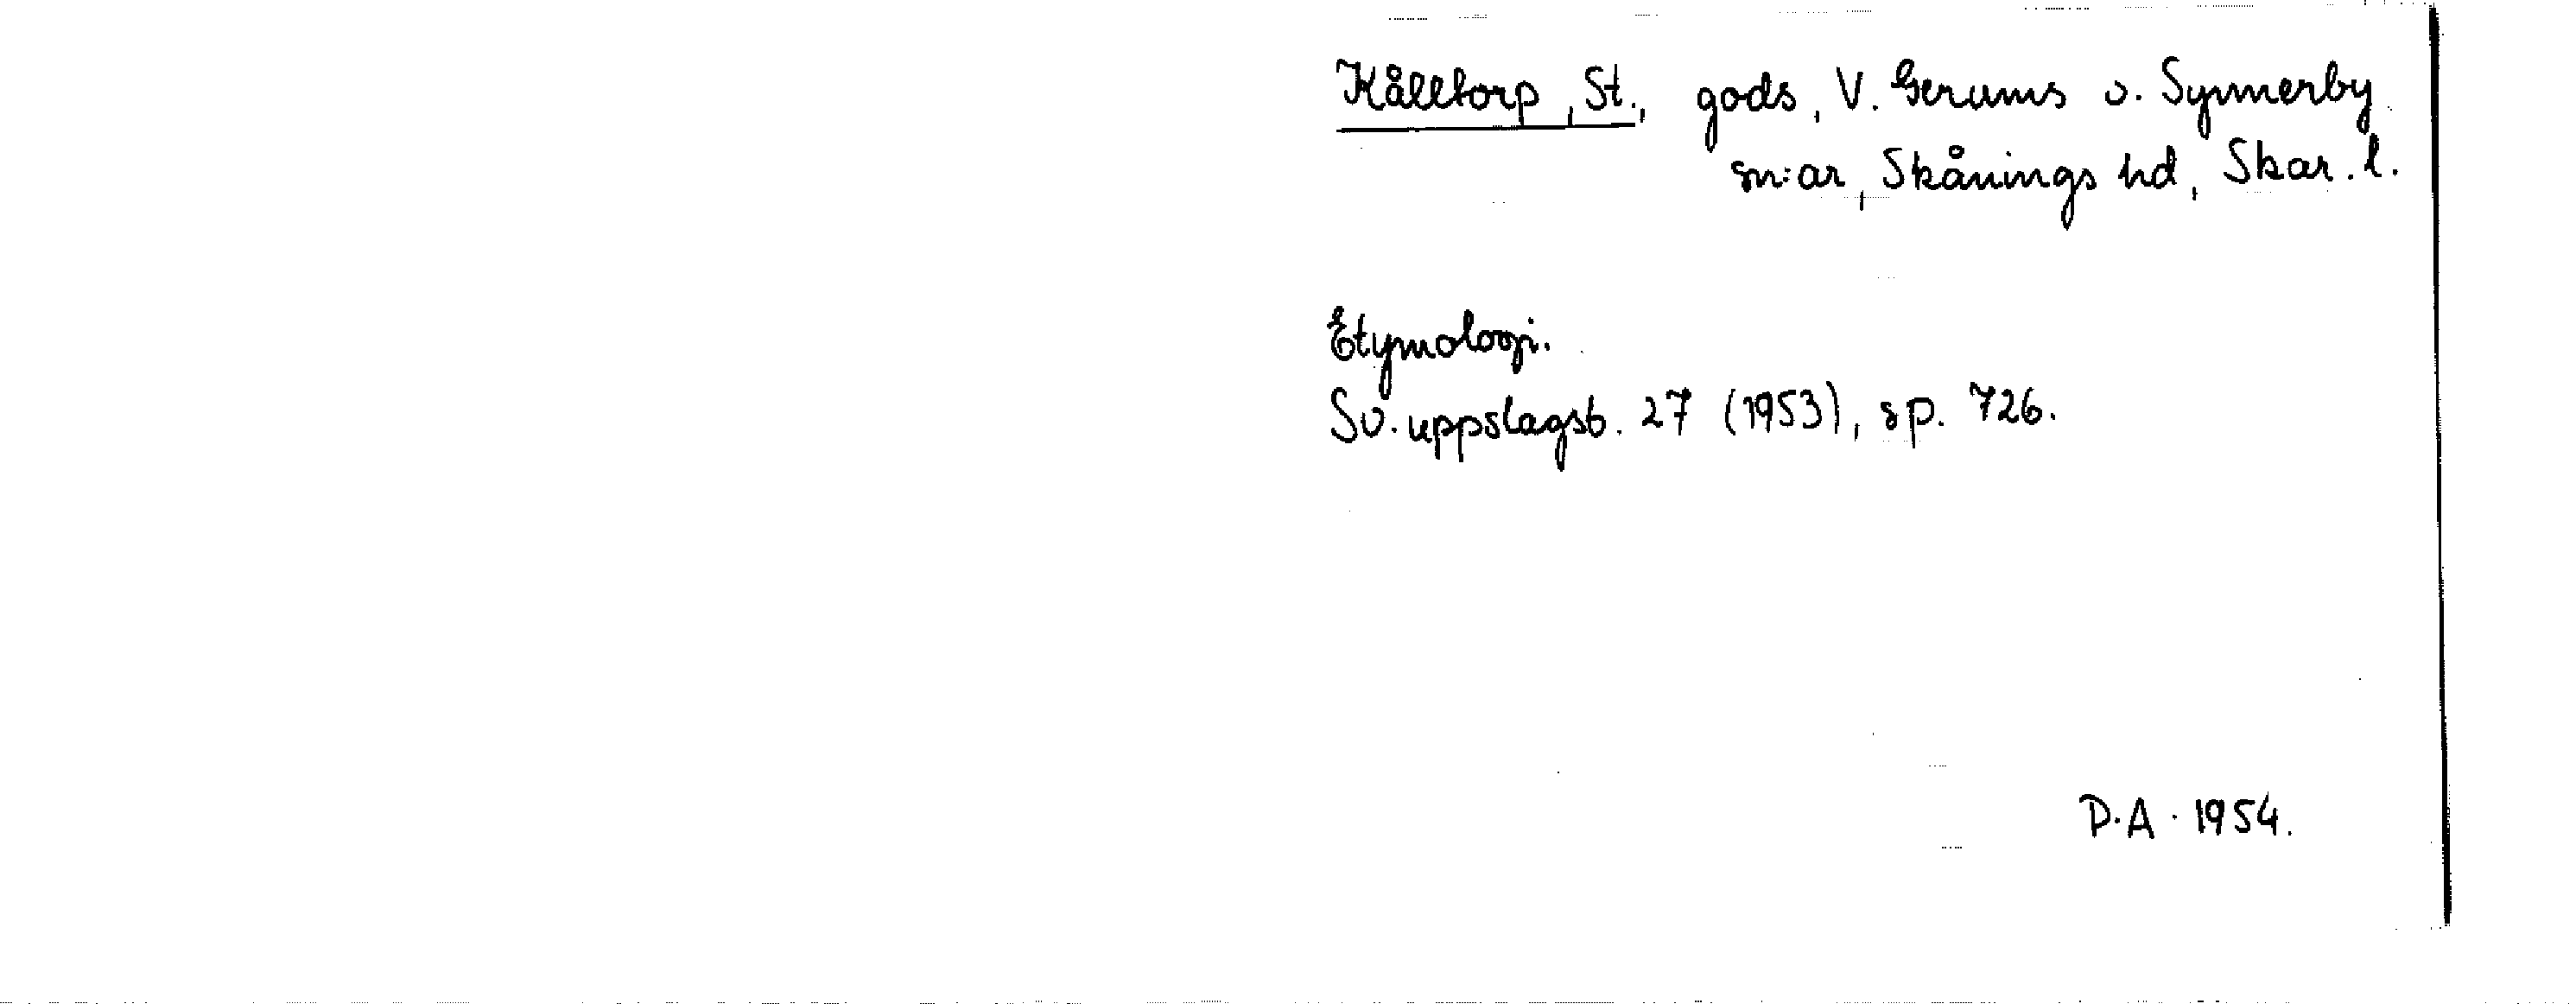 Kålltorp, St., gods, V. Gerums o. Synnerby
sn:ar, Skånings hd, Skar. l.
Etymologi.
Sv. uppslagsb. 27 (1953), sp. 726.
D.A. 1954.